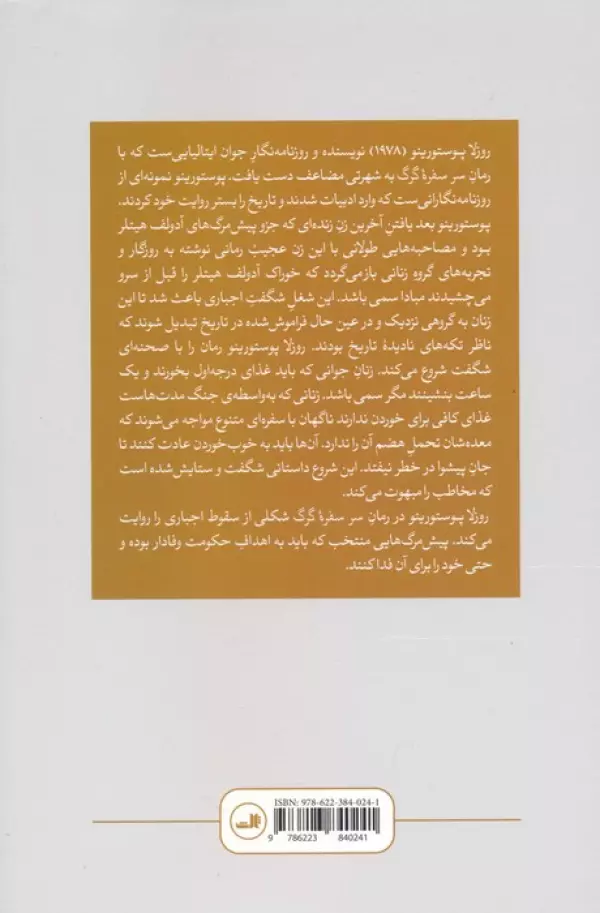 روزلا پوستورینو (۱۹۷۸) نویسنده و روزنامه‌نگارِ جوان ایتالیایی‌ست که با
رمانِ سر سفرهٔ گرگ به شهرتی مضاعف دست یافت. پوستورینو نمونه‌ای از
روزنامه‌نگارانی‌ست که وارد ادبیات شدند و تاریخ را بستر روایت خود کردند.
پوستورینو بعد یافتنِ آخرین زنِ زنده‌ای که جزو پیش‌مرگ‌های آدولف هیتلر
بود و مصاحبه‌هایی طولانی با این زن عجیب رمانی نوشته به روزگار و
تجربه‌های گروه زنانی بازمی‌گردد که خوراک آدولف هیتلر را قبل از سرو
می‌چشیدند مبادا سمی باشد. این شغلِ شگفتِ اجباری باعث شد تا این
زنان به گروهی نزدیک و در عین حال فراموش‌شده در تاریخ تبدیل شوند که
ناظر تکه‌های نادیدهٔ تاریخ بودند. روزلا پوستورینو رمان را با صحنه‌ای
شگفت شروع می‌کند. زنانِ جوانی که باید غذای درجه‌اول بخورند و یک
ساعت بنشینند مگر سمی باشد. زنانی که به‌واسطه‌ی جنگ مدت‌هاست
غذای کافی برای خوردن ندارند ناگهان با سفره‌ای متنوع مواجه می‌شوند که
معده‌شان تحملِ هضم آن را ندارد. آن‌ها باید به خوب‌خوردن عادت کنند تا
جانِ پیشوا در خطر نیفتد. این شروع داستانی شگفت و ستایش‌شده است
که مخاطب را مبهوت می‌کند.
روزلا پوستورینو در رمانِ سر سفرهٔ گرگ شکلی از سقوط اجباری را روایت
می‌کند. پیش‌مرگ‌هایی منتخب که باید به اهدافِ حکومت وفادار بوده و
حتی خود را برای آن فدا کنند.
ISBN: 978-622-384-024-1
9 786223 840241
ثالث